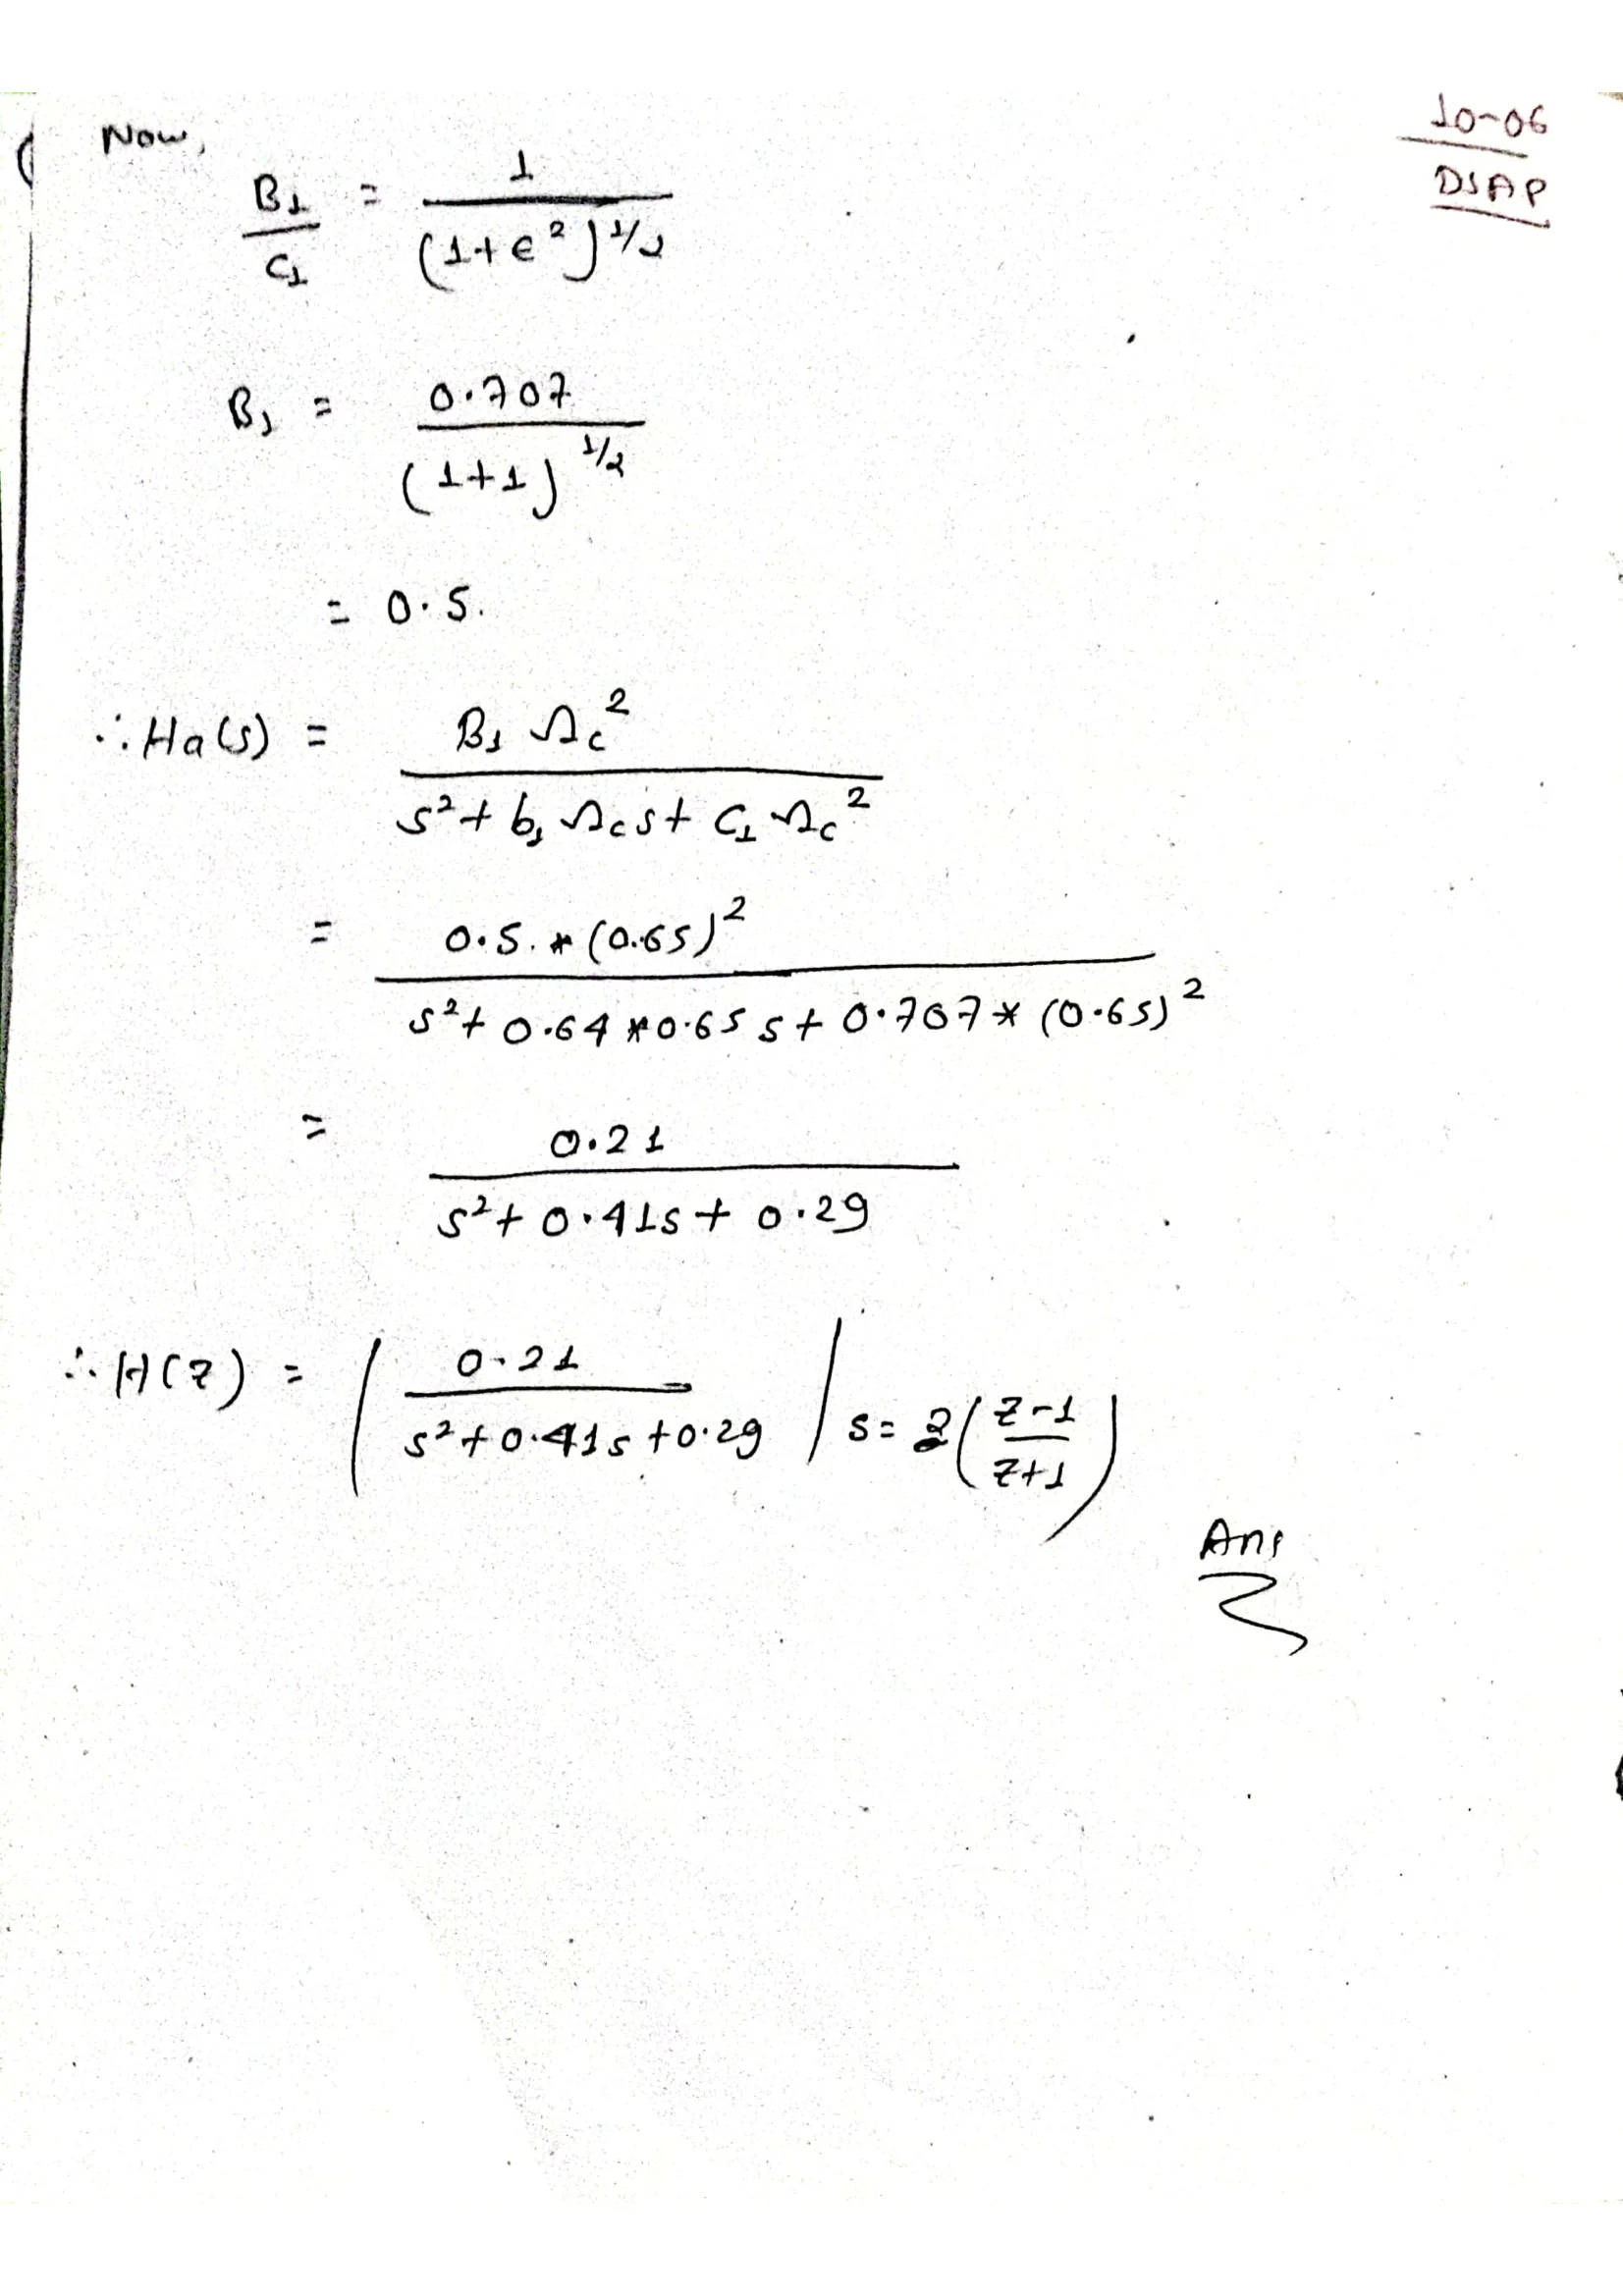 10-06
DSAP
Now,
B₁/C₁ = 1/(1+ϵ²)^1/2
B₁ = 0.707/(1+1)^1/2
= 0.5.
∴ Ha(s) = B₁ Ωc²/(s²+ b₁ Ωc s+ C₁ Ωc²)
= 0.5. * (0.65)²/(s²+ 0.64 * 0.65 s + 0.707 * (0.65)²)
= 0.21/(s²+ 0.41s + 0.29)
∴ H(z) = | 0.21/(s²+0.41s +0.29) | s= 2((z-1)/(z+1))
Ans